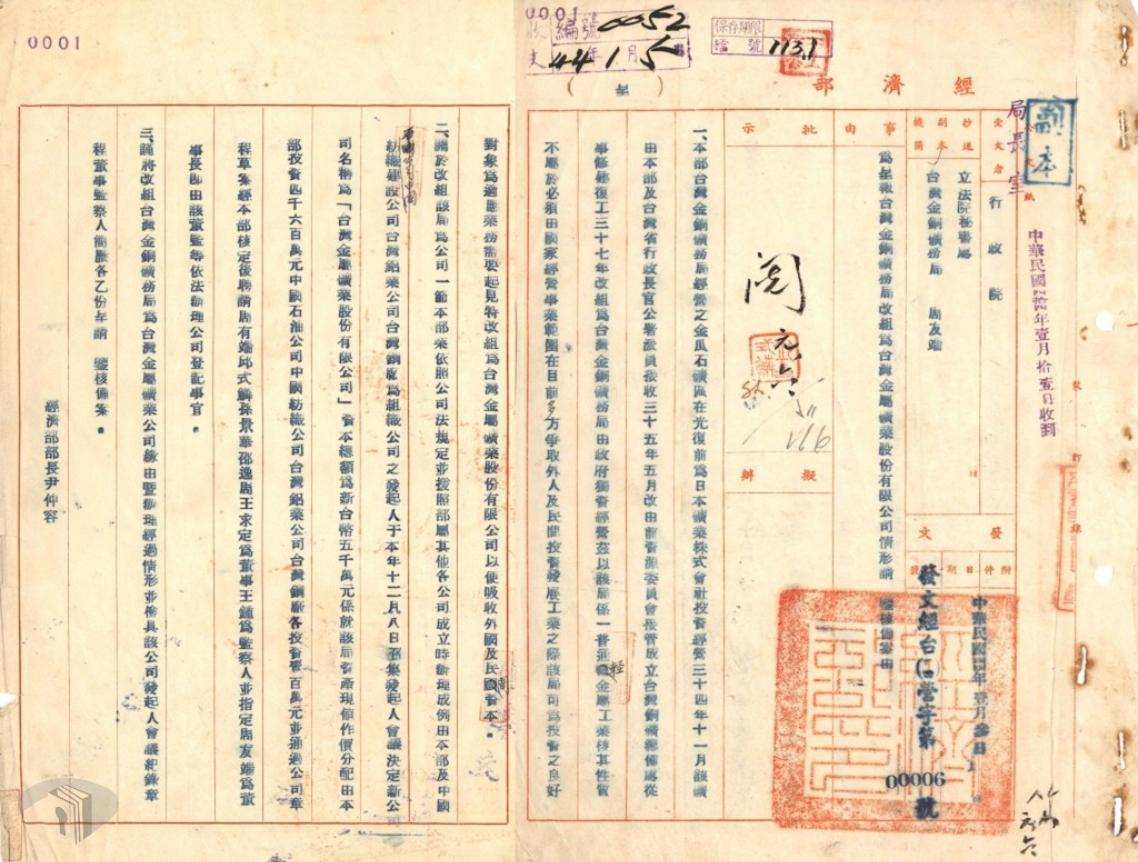 0001
收文
編號 0052
44年1月5
保存期限
檔號 113.1
經濟部
（呈）
副本
局長室
中華民國
年壹月拾壹日收到
受文者
行政院
抄送副本機關
立法院秘書處
台灣金銅礦務局 周友端
事由
為呈報台灣金銅礦務局改組為台灣金屬礦業股份有限公司情形請 鑒核備案由
批示
擬辦
閱
1/6
發文
附件
日期
字號
中華民國四四年壹月參日
發文經台(四四)營字第
00006
號
一、本部台灣金銅礦務局經營之金瓜石礦區在光復前為日本礦業株式會社投資經營三十四年十一月該礦
由本部及台灣省行政長官公署派員接收三十五年五月改由前資源委員會接管成立台灣銅礦籌備處從
事修建復工三十七年改組為台灣金銅礦務局由政府獨資經營茲以該局係一普通輕金屬工業核其性質
不屬於必須由國家經營事業範圍在目前多方爭取外人及民間投資發展工業之際該局可為投資之良好
0001
對象為適應業務需要起見特改組為台灣金屬礦業股份有限公司以便吸收外國及民間資本。
二、關於改組該局為公司一節本部業依照公司法規定並援照部屬其他各公司成立時辦理成例由本部及中國
石油公司中國
紡織建設公司台灣鋁業公司台灣銅廠為組織公司之發起人于本年十二月八日召集發起人會議決定新公
司名稱為「台灣金屬礦業股份有限公司」資本總額為新台幣五千萬元係就該局資產現值作價分配由本
部投資四千六百萬元中國石油公司中國紡織公司台灣鋁業公司台灣銅廠各投資壹百萬元並通過公司章
程草案經本部核定後聘請周有端邱式麟孫景華邵逸周王求定為董事王鍾為監察人並指定周友端為董
事長即由該董監等依法辦理公司登記事宜。
三、謹將改組台灣金銅礦務局為台灣金屬礦業公司緣由暨辦理經過情形並檢具該公司發起人會議紀錄章
程董事監察人簡歷各乙份呈請 鑒核備案。
經濟部部長尹仲容